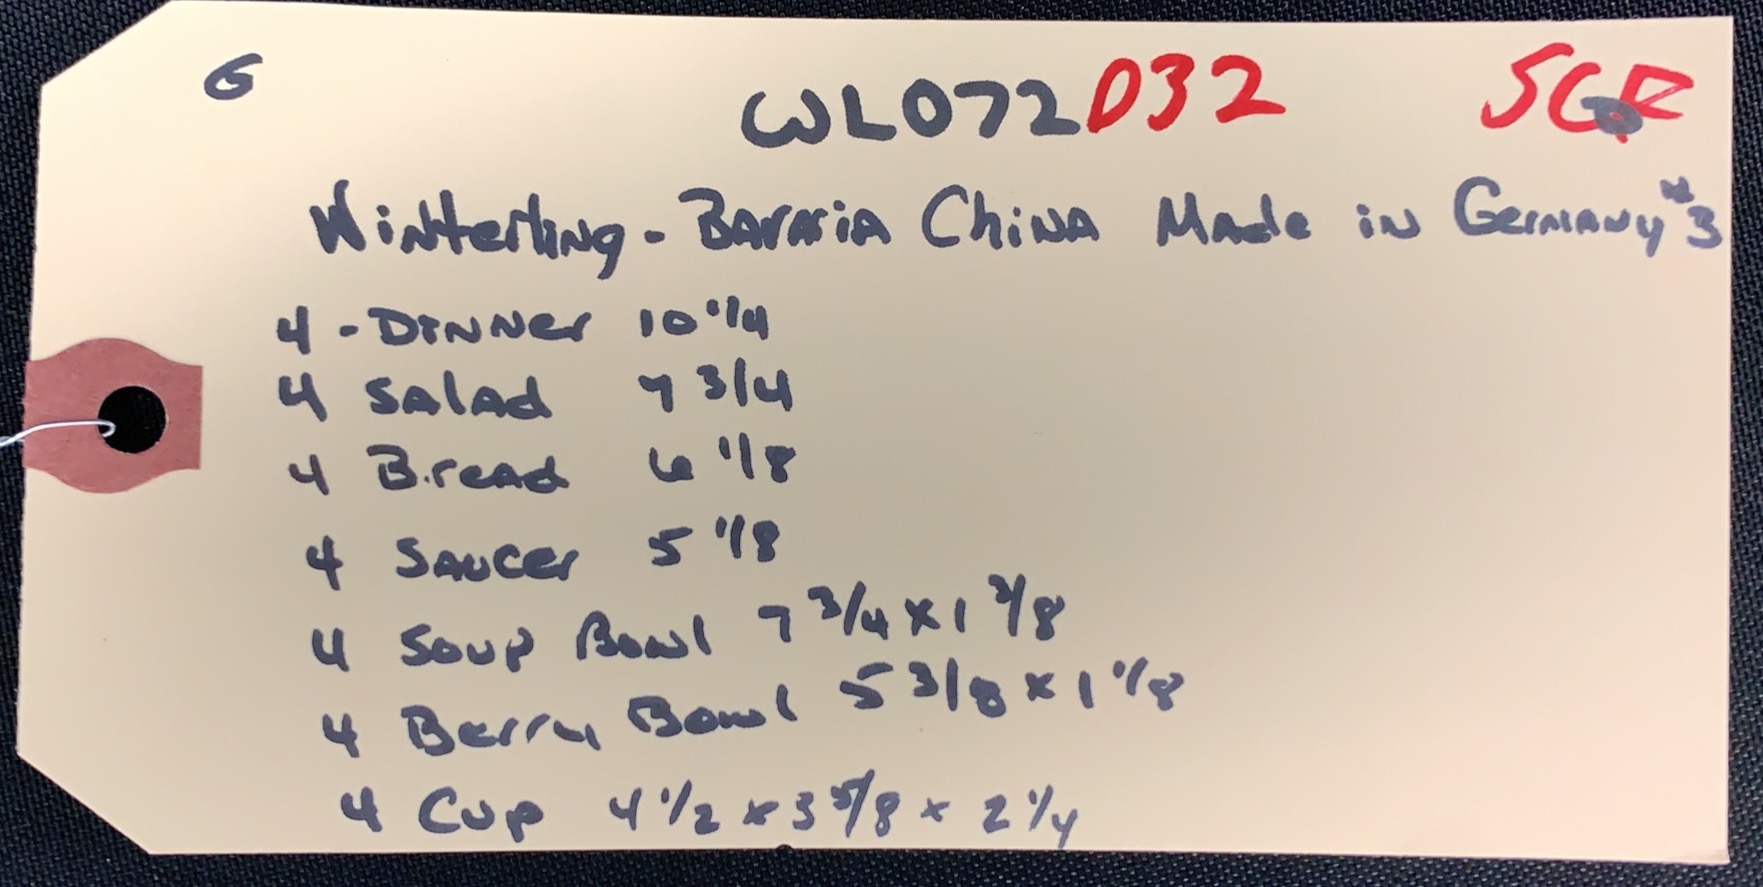 6 WL072D32 SGR
Winterling - Bavaria China Made in Germany #3
4 - Dinner 10 1/4
4 Salad 7 3/4
4 Bread 6 1/8
4 Saucer 5 1/8
4 Soup Bowl 7 3/4 x 1 3/8
4 Berry Bowl 5 3/8 x 1 1/8
4 Cup 4 1/2 x 3 5/8 x 2 1/4